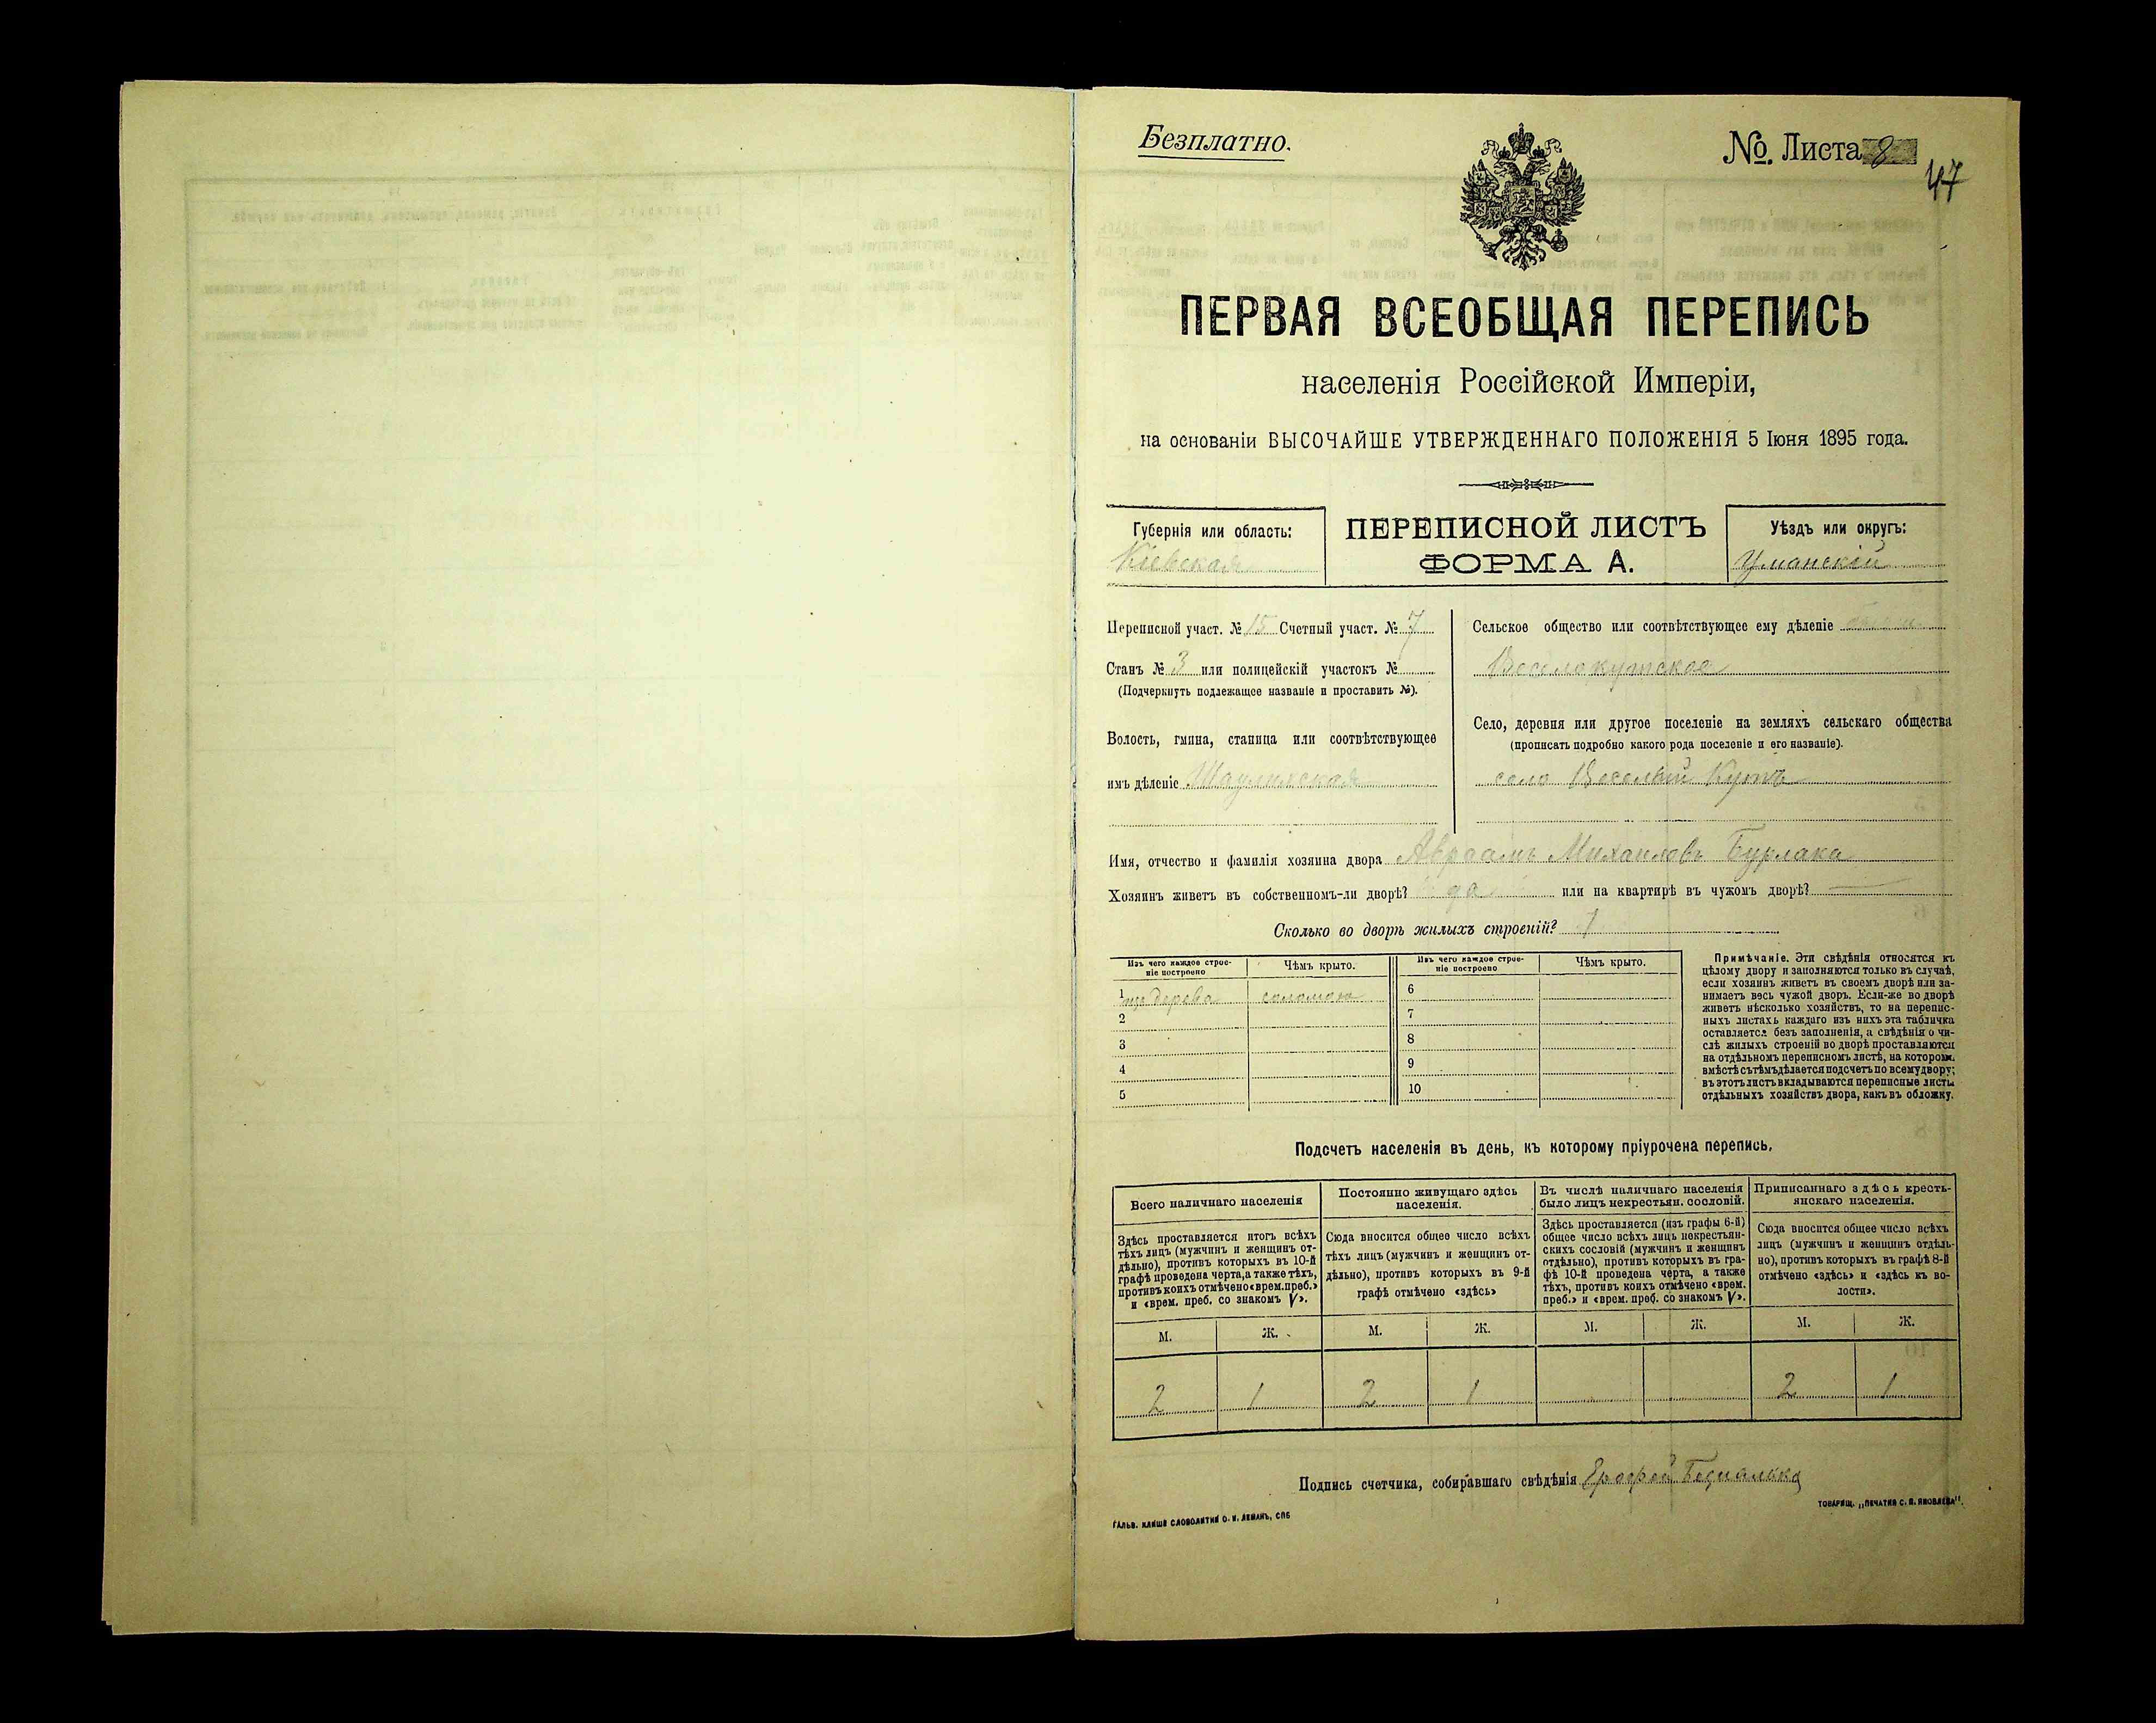 Безплатно.
№. Листа 8
47
ПЕРВАЯ ВСЕОБЩАЯ ПЕРЕПИСЬ
населенія Россійской Имперіи,
на основаніи ВЫСОЧАЙШЕ УТВЕРЖДЕННАГО ПОЛОЖЕНІЯ 5 Іюня 1895 года.
Губернія или область:
Кіевская
ПЕРЕПИСНОЙ ЛИСТЪ
ФОРМА А.
Уѣздъ или округъ:
Уманскій
Переписной участ. № 15 Счетный участ. № 7
Станъ № 3 или полицейскій участокъ №
(Подчеркнуть подлежащее названіе и проставить №).
Волость, гмина, станица или соотвѣтствующее
имъ дѣленіе Шаулихская
Сельское общество или соотвѣтствующее ему дѣленіе
Веселокутское
Село, деревня или другое поселеніе на земляхъ сельскаго общества
(прописать подробно какого рода поселеніе и его названіе).
село Веселый Кутъ
Имя, отчество и фамилія хозяина двора Авраамъ Михаиловъ Бурлака
Хозяинъ живетъ въ собственномъ-ли дворѣ? да или на квартирѣ въ чужомъ дворѣ? —
Сколько во дворѣ жилыхъ строеній? 1
Изъ чего каждое строе-
ніе построено
Чѣмъ крыто.
Изъ чего каждое строе-
ніе построено
Чѣмъ крыто.
1 изъ дерева соломою
2
3
4
5
6
7
8
9
10
Примѣчаніе. Эти свѣдѣнія относятся къ
цѣлому двору и заполняются только въ случаѣ,
если хозяинъ живетъ въ своемъ дворѣ или за-
нимаетъ весь чужой дворъ. Если-же во дворѣ
живетъ нѣсколько хозяйствъ, то на перепис-
ныхъ листахъ каждаго изъ нихъ эта табличка
оставляется безъ заполненія, а свѣдѣнія о чи-
слѣ жилыхъ строеній во дворѣ проставляются
на отдѣльномъ переписномъ листѣ, на которомъ
вмѣстѣ съ тѣмъ дѣлается подсчетъ по всему двору;
въ этотъ листъ вкладываются переписные листы
отдѣльныхъ хозяйствъ двора, какъ въ обложку.
Подсчетъ населенія въ день, къ которому пріурочена перепись.
Всего наличнаго населенія
Здѣсь проставляется итогъ всѣхъ
тѣхъ лицъ (мужчинъ и женщинъ от-
дѣльно), противъ которыхъ въ 10-й
графѣ проведена черта, а также тѣхъ,
противъ коихъ отмѣчено «врем. преб.»
и «врем. преб. со знакомъ V».
Постоянно живущаго здѣсь
населенія.
Сюда вносится общее число всѣхъ
тѣхъ лицъ (мужчинъ и женщинъ от-
дѣльно), противъ которыхъ въ 9-й
графѣ отмѣчено «здѣсь»
Въ числѣ наличнаго населенія
было лицъ некрестьян. сословій.
Здѣсь проставляется (изъ графы 6-й)
общее число всѣхъ лицъ некрестьян-
скихъ сословій (мужчинъ и женщинъ
отдѣльно), противъ которыхъ въ гра-
фѣ 10-й проведена черта, а также
тѣхъ, противъ коихъ отмѣчено «врем.
преб.» и «врем. преб. со знакомъ V».
Приписаннаго здѣсь кресть-
янскаго населенія.
Сюда вносится общее число всѣхъ
лицъ (мужчинъ и женщинъ отдѣль-
но), противъ которыхъ въ графѣ 8-й
отмѣчено «здѣсь» и «здѣсь въ во-
лости».
М. Ж. М. Ж. М. Ж. М. Ж.
2 1 2 1 2 1
Подпись счетчика, собиравшаго свѣдѣнія Ерофей
ГАЛЬВ. КЛИШЕ СЛОВОЛИТНИ О. И. ЛЕМАНЪ, СПБ
ТОВАРИЩ. „ПЕЧАТНЯ С. П. ЯКОВЛЕВА".